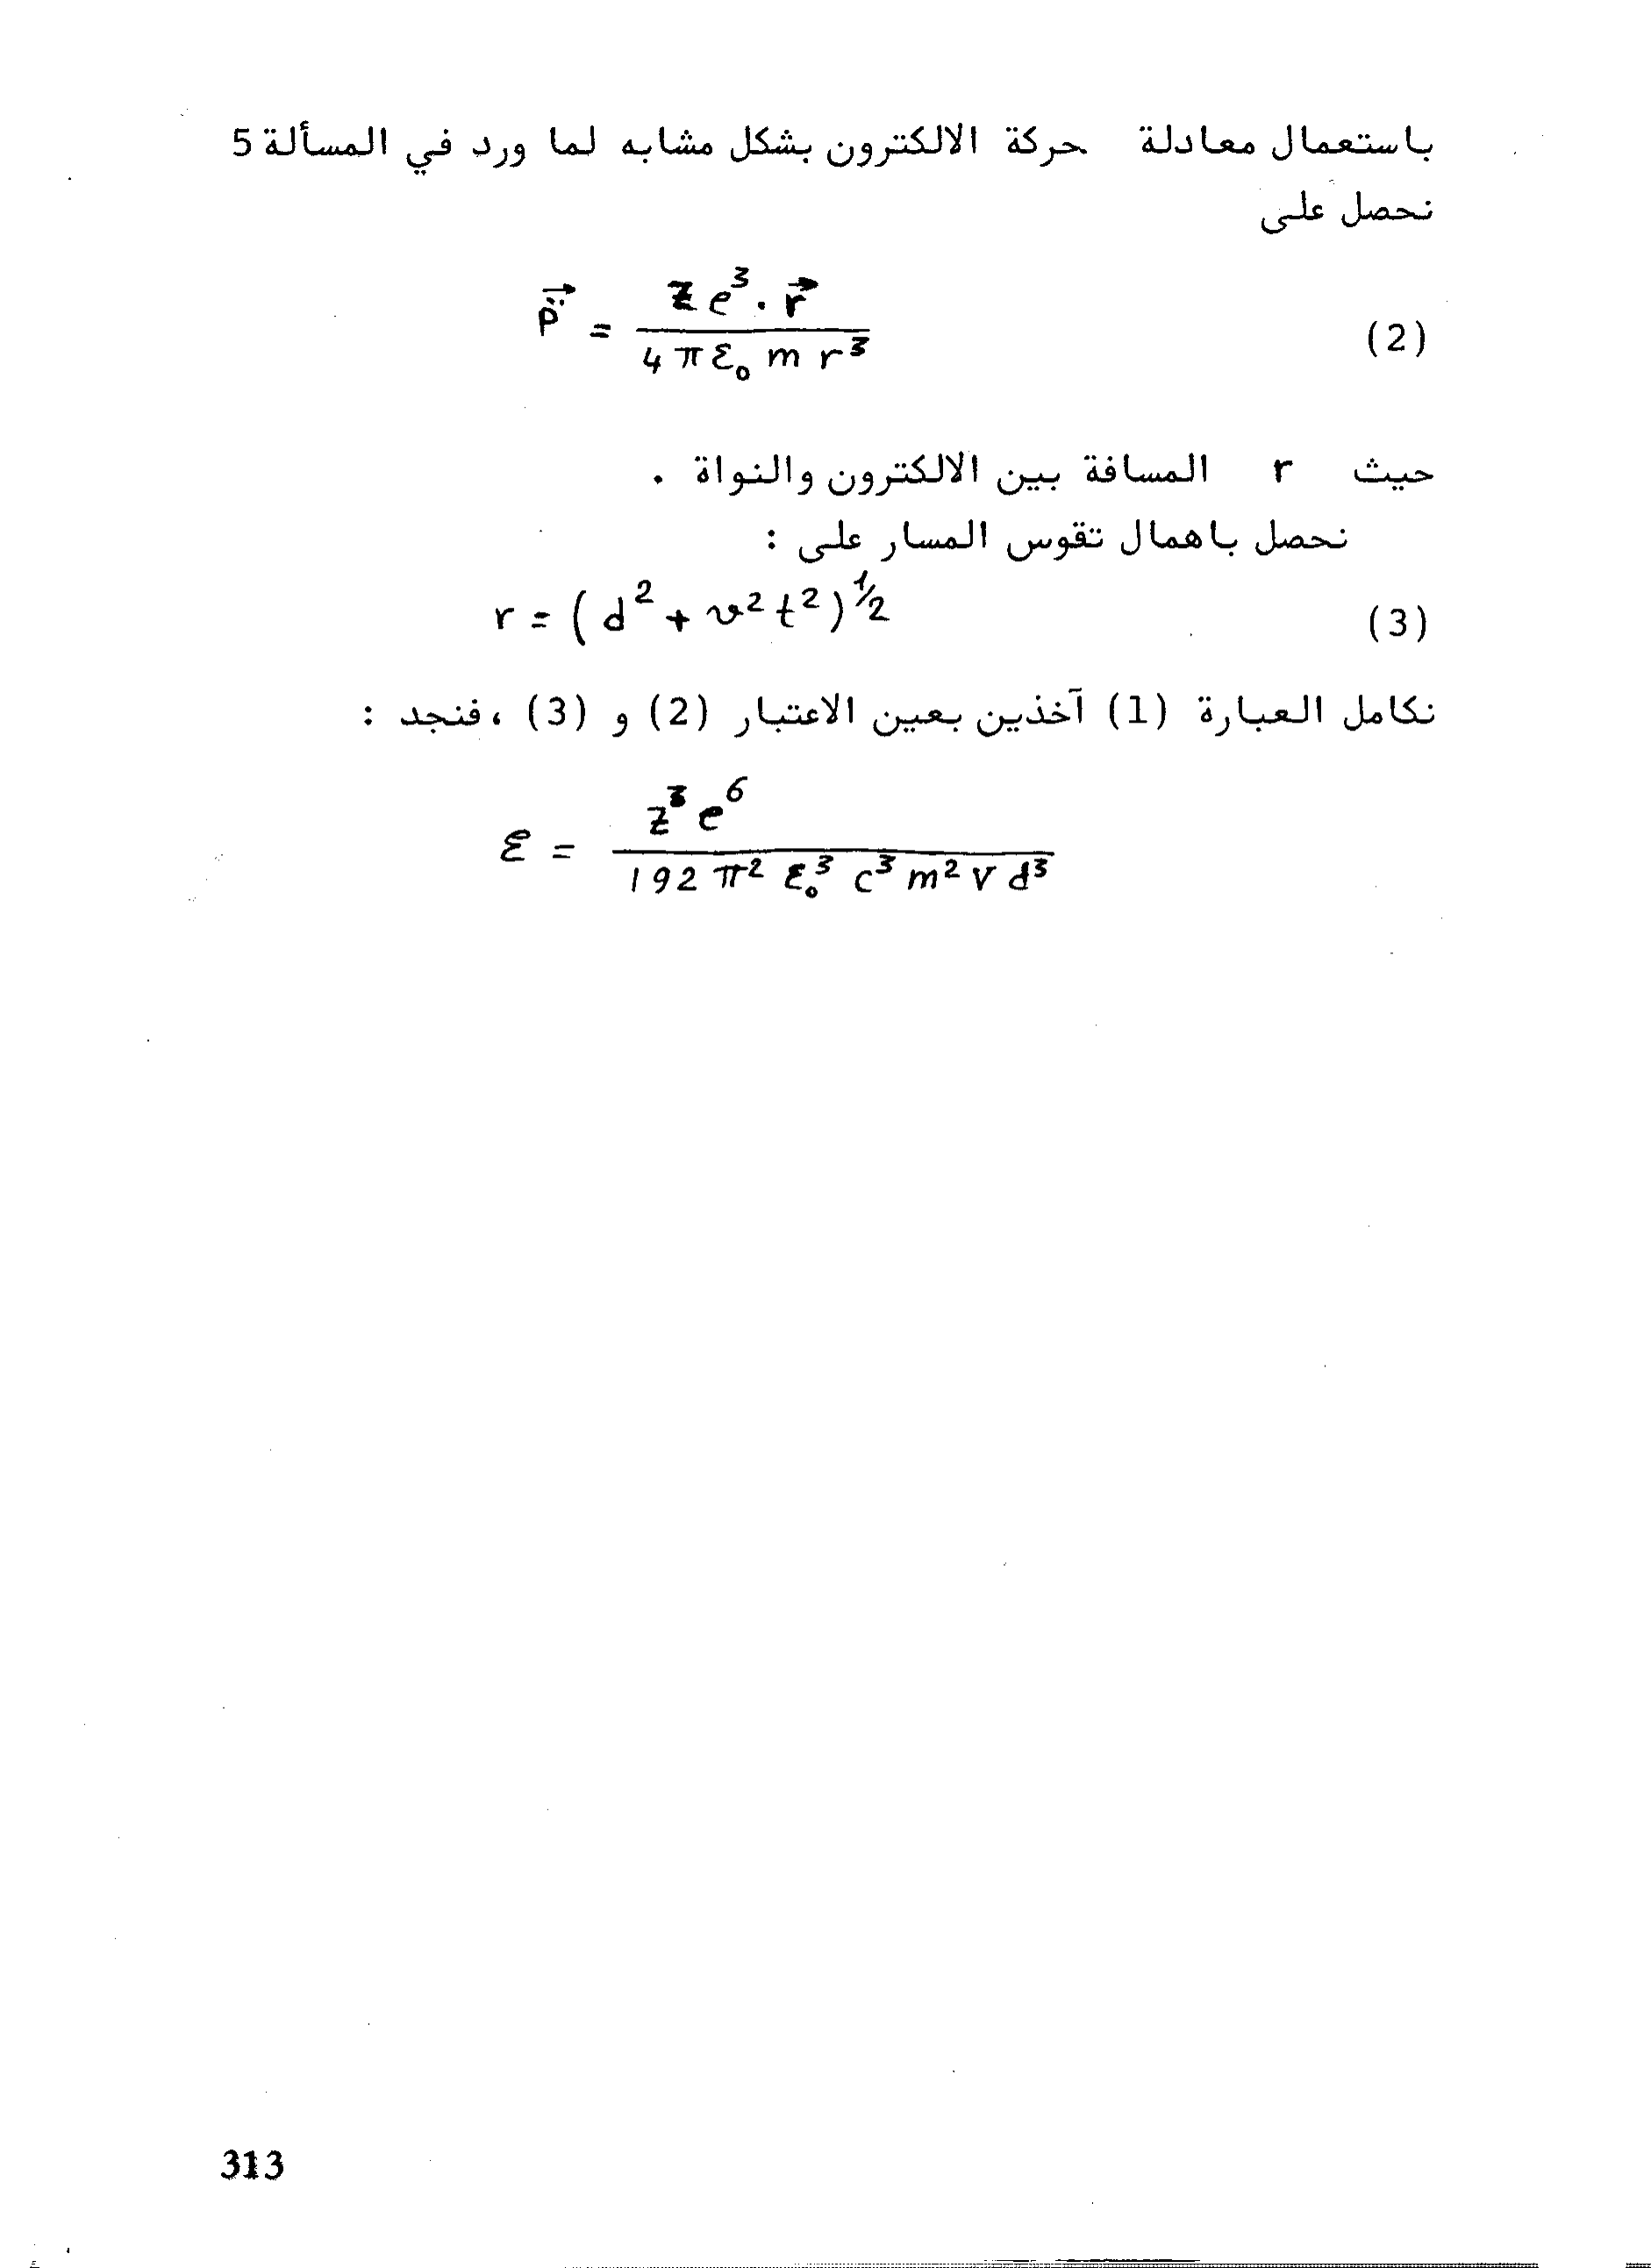 باستعمال معادلة حركة الالكترون بشكل مشابه لما ورد في المسألة 5
نحصل على
\ddot{\vec{p}} = \frac{Z e^3 \cdot \vec{r}}{4 \pi \varepsilon_0 m r^3} (2)
حيث r المسافة بين الالكترون والنواة .
نحصل باهمال تقوس المسار على :
r = ( d^2 + v^2 t^2 )^{1/2} (3)
نكامل العبارة (1) آخذين بعين الاعتبار (2) و (3) ، فنجد :
\mathcal{E} = \frac{Z^3 e^6}{192 \pi^2 \varepsilon_0^3 c^3 m^2 V d^3}
313